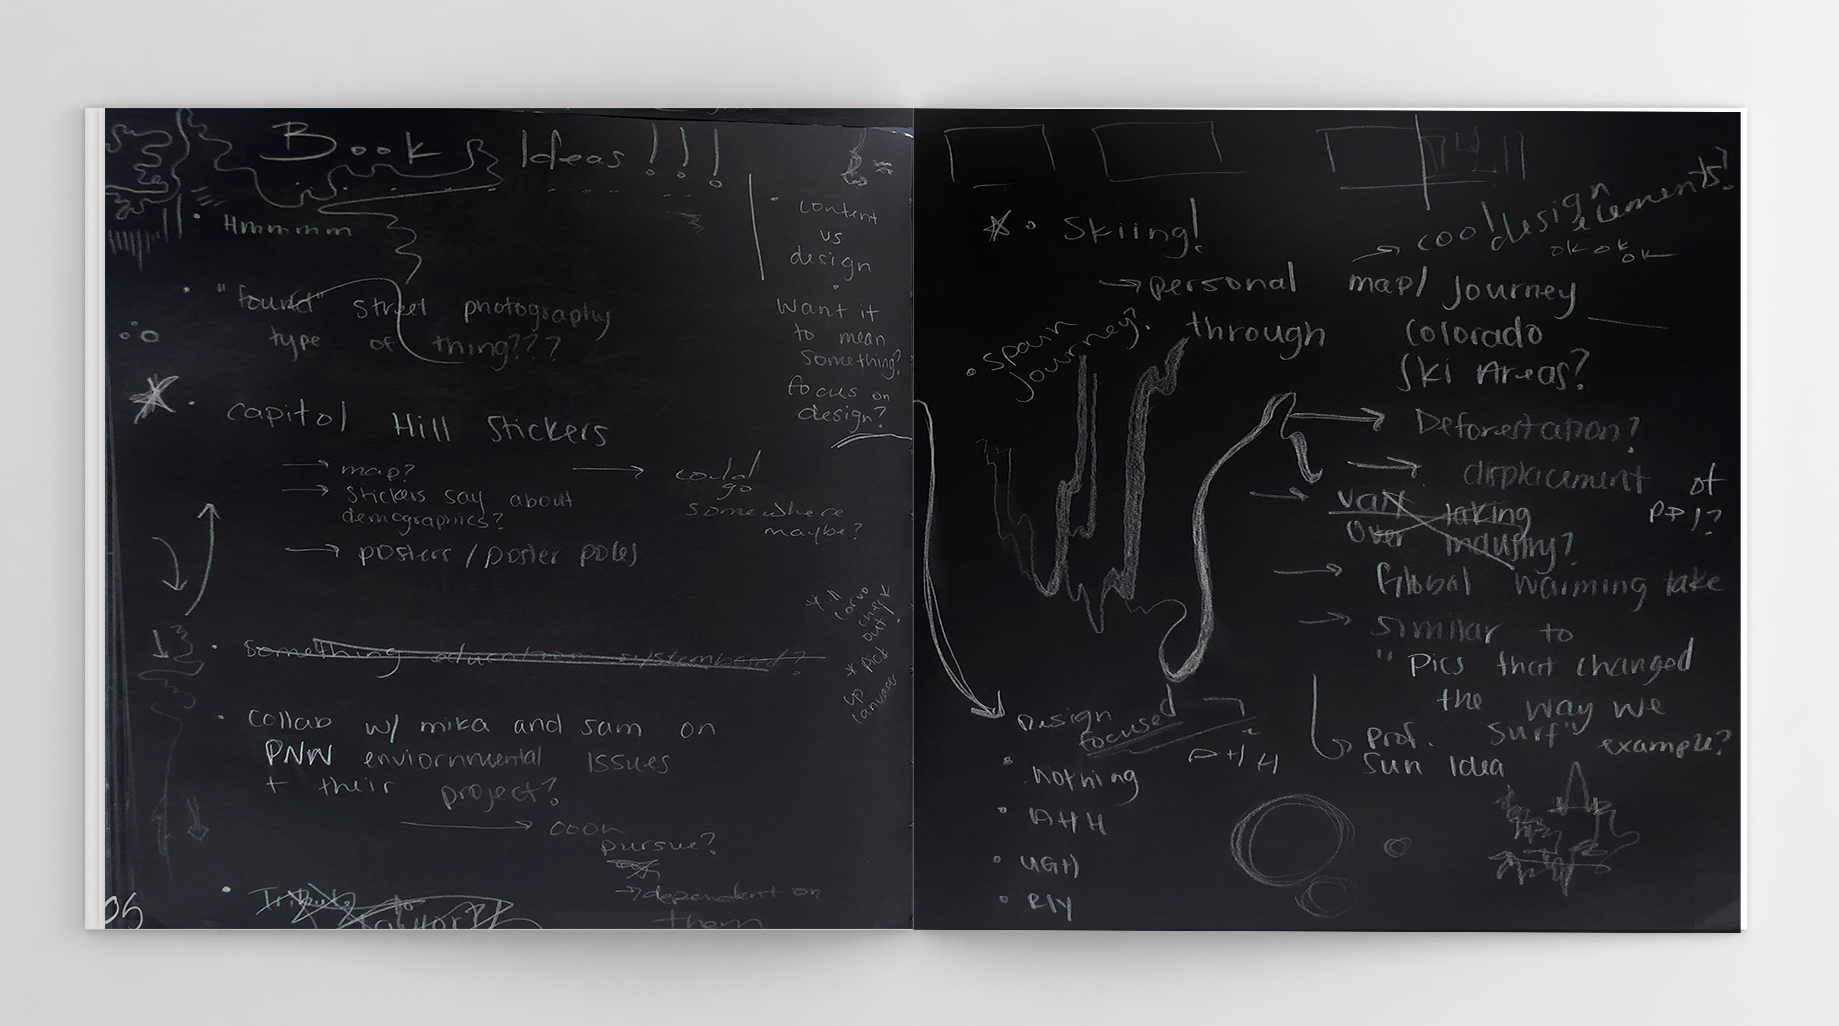 Book Ideas!!!
Hmmmm
"found" street photography
type of thing???
Capitol Hill Stickers
→ map? → could go
somewhere
maybe?
→ stickers say about
demographics?
→ posters / poster poles
Something education system based?
Collab w/ mika and sam on
PNW enviornmental issues
+ their project?
→ oooh
pursue?
→ dependent on
them
content
vs
design
Want it
to mean
something?
focus on
design?
check
out!
* pick
up
05
* Skiing!
→ cool design elements!
ok ok
ok
→ personal map/journey
through Colorado
Ski Areas?
span
journey?
→ Deforestation?
→ displacement of
ppl?
→ Vail taking
over industry?
→ Global warming take
→ similar to
"Pics that changed
the way we
Surf" example?
prof.
Sun Idea
Design
focused
Nothing
AHH
UGH